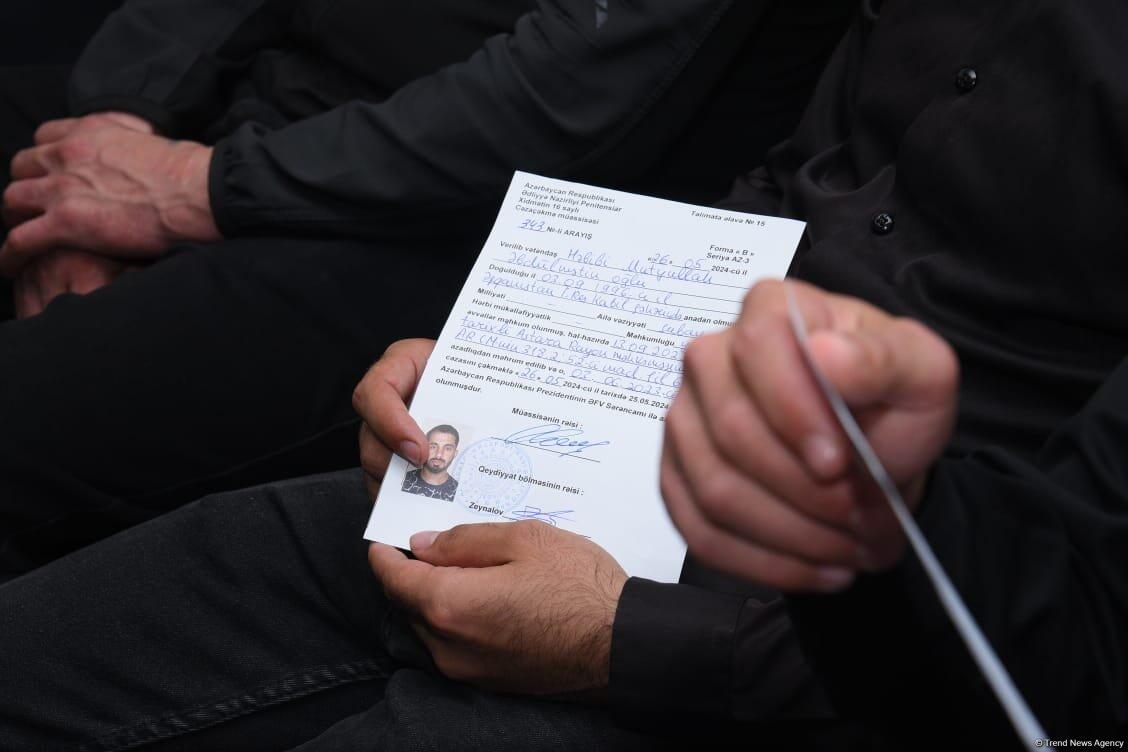 Azərbaycan Respublikası
Ədliyyə Nazirliyi Penitensiar
Xidmətin 16 saylı
Cəzaçəkmə müəssisəsi
Təlimata əlavə № 15
343 №-li ARAYIŞ
Forma « B »
Seriya AZ-3
«26» 05 2024-cü il
Verilib vətəndaş Həbibi Mutyullah
Əbdülmətin oğlu
Doğulduğu il 03.09.1996-cı il
Əfqanıstan / Kabil şəhərində anadan olmuş
Milliyəti - Ailə vəziyyəti subay
Hərbi mükəlləfiyyətlik Məhkumluğu
əvvəllər məhkum olunmuş, hal-hazırda 13.09.202
tarixli Astara Rayon məhkəməsinin
AR CM-nin 318.2; 53-cü mad. ilə 6
azadlıqdan məhrum edilib və o, 03.06.2023-cü
cəzasını çəkməklə «26» 05 2024-cü il tarixdə 25.05.2024
Azərbaycan Respublikası Prezidentinin ƏFV Sərəncamı ilə a
olunmuşdur.
Müəssisənin rəisi :
Qeydiyyat bölməsinin rəisi :
Zeynalov
© Trend News Agency